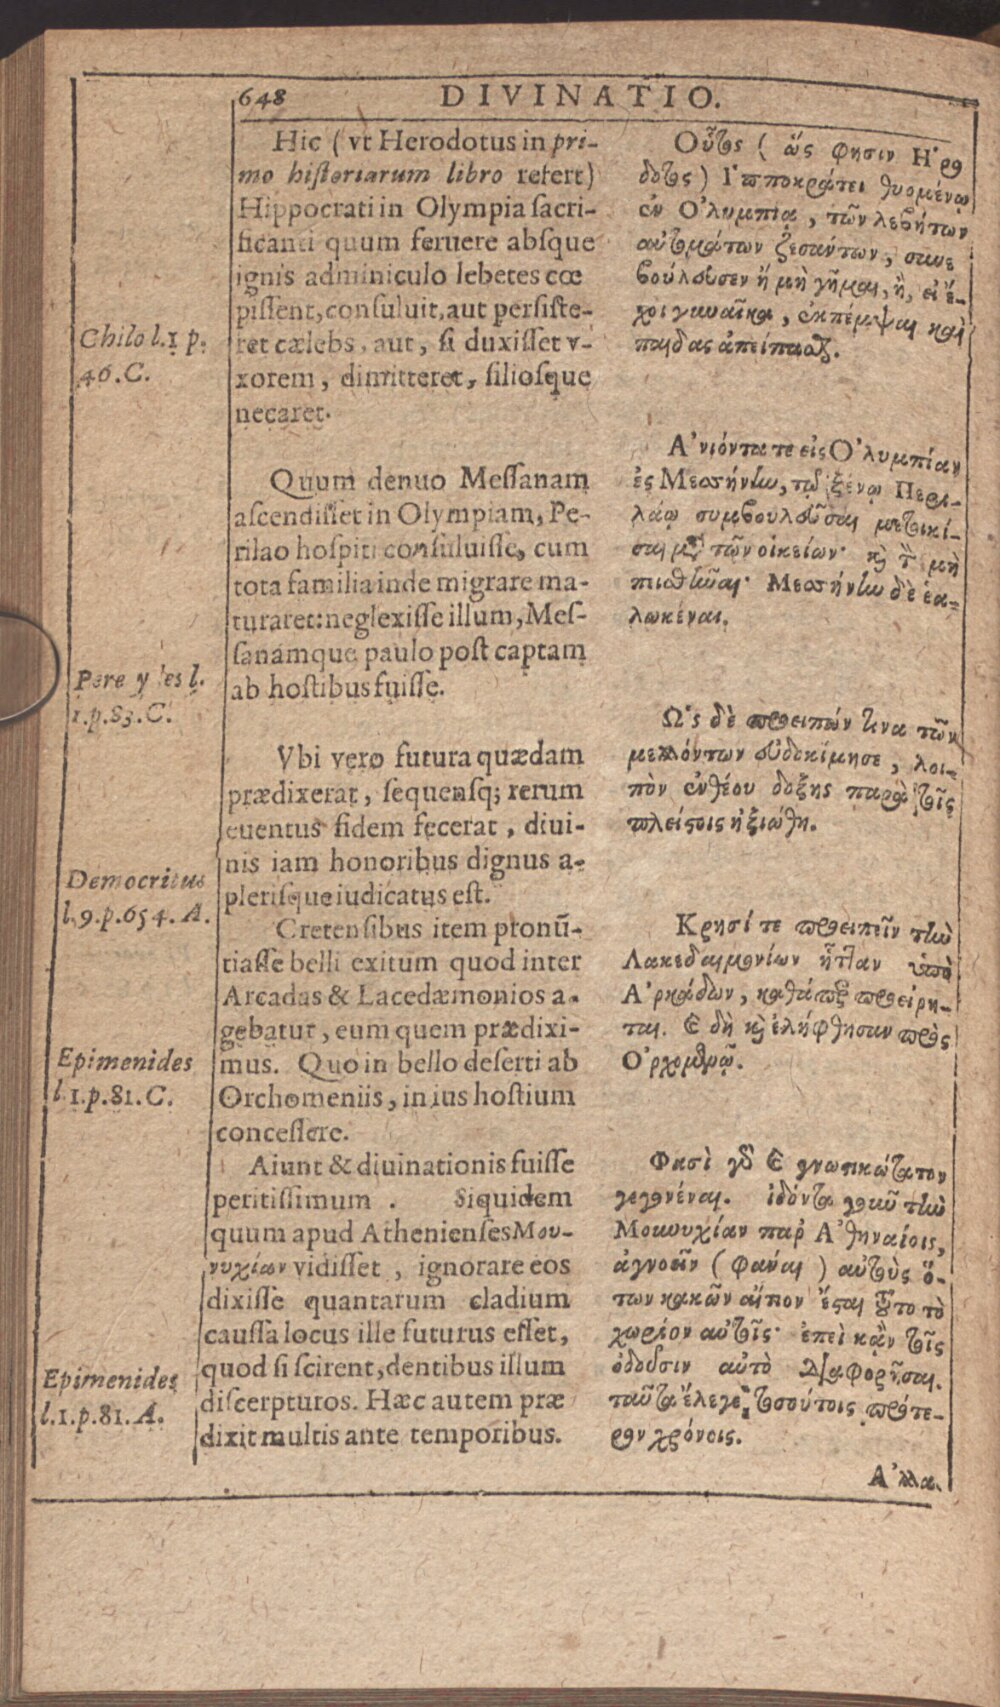 648 DIVINATIO.
Hic (vt Herodotus in pri-
mo historiarum libro refert)
Hippocrati in Olympia sacri-
ficanti quum feruere absque
ignis adminiculo lebetes cœ
pissent, consuluit, aut persiste-
ret cælebs, aut, si duxisset v-
xorem, dimitteret, filiosque
necaret.
Chilo l.1 p.
46.C.
Quum denuo Messanam
ascendisset in Olympiam, Pe-
rilao hospiti consuluisse, cum
tota familia inde migrare ma-
turaret: neglexisse illum, Mes-
sanamque paulo post captam
ab hostibus fuisse.
l.
1.p.83.C.
Vbi vero futura quædam
prædixerat, sequensq; rerum
euentus fidem fecerat, diui-
nis iam honoribus dignus a-
plerisque iudicatus est.
Democritus
l.9.p.654.A.
Cretensibus item pronũ-
tiasse belli exitum quod inter
Arcadas & Lacedæmonios a-
gebatur, eum quem prædixi-
mus. Quo in bello deserti ab
Orchomeniis, in ius hostium
concessere.
Epimenides
l.1.p.81.C.
Aiunt & diuinationis fuisse
peritissimum. Siquidem
quum apud Athenienses Μου-
νυχίαν vidisset, ignorare eos
dixisse quantarum cladium
caussa locus ille futurus esset,
quod si scirent, dentibus illum
discerpturos. Hæc autem præ
dixit multis ante temporibus.
Epimenides
l.1.p.81.A.
Οὗτος (ὥς φησιν Ἡρο
δοτος) Ἱπποκράτει θυομένῳ
ἐν Ὀλυμπίᾳ, τῶν λεβήτων
αὐτομάτων ζεσάντων, συνε
βούλευσεν ἢ μὴ γῆμαι, ἢ, εἰ ἔ-
χοι γυναῖκα, ἐκπέμψαι καὶ
παῖδας ἀπείπασθαι.
Ἀνιόντα τε εἰς Ὀλυμπίαν
ἐς Μεσσήνην, τῷ ξένῳ Περι-
λάῳ συμβουλεῦσαι μετοικί-
σαι μετὰ τῶν οἰκείων· καὶ τὸν μὴ
πεισθῆναι· Μεσσήνην δὲ ἑα-
λωκέναι.
Ὡς δὲ προειπών τινα τῶν
μελλόντων εὐδοκίμησε, λοι-
πὸν ἐνθέου δόξης παρὰ τοῖς
πλείστοις ἠξιώθη.
Κρησί τε προειπεῖν τὴν
Λακεδαιμονίων ἧτταν ὑπὸ
Ἀρκάδων, καθάπερ προείρη-
ται. καὶ δὴ καὶ ἐλήφθησαν πρὸς
Ὀρχομενῷ.
Φασὶ γὰρ καὶ γνωστικώτατον
γεγονέναι. ἰδόντα γοῦν τὴν
Μουνυχίαν παρ' Ἀθηναίοις,
ἀγνοεῖν (φάναι) αὐτοὺς ὅ-
των κακῶν αἴτιον ἔσται τοῦτο τὸ
χωρίον αὐτοῖς· ἐπεὶ κἂν τοῖς
ὀδοῦσιν αὐτὸ διαφορῆσαι.
ταῦτα ἔλεγε τοσούτοις πρότε-
ρον χρόνοις.
Ἀλλα.